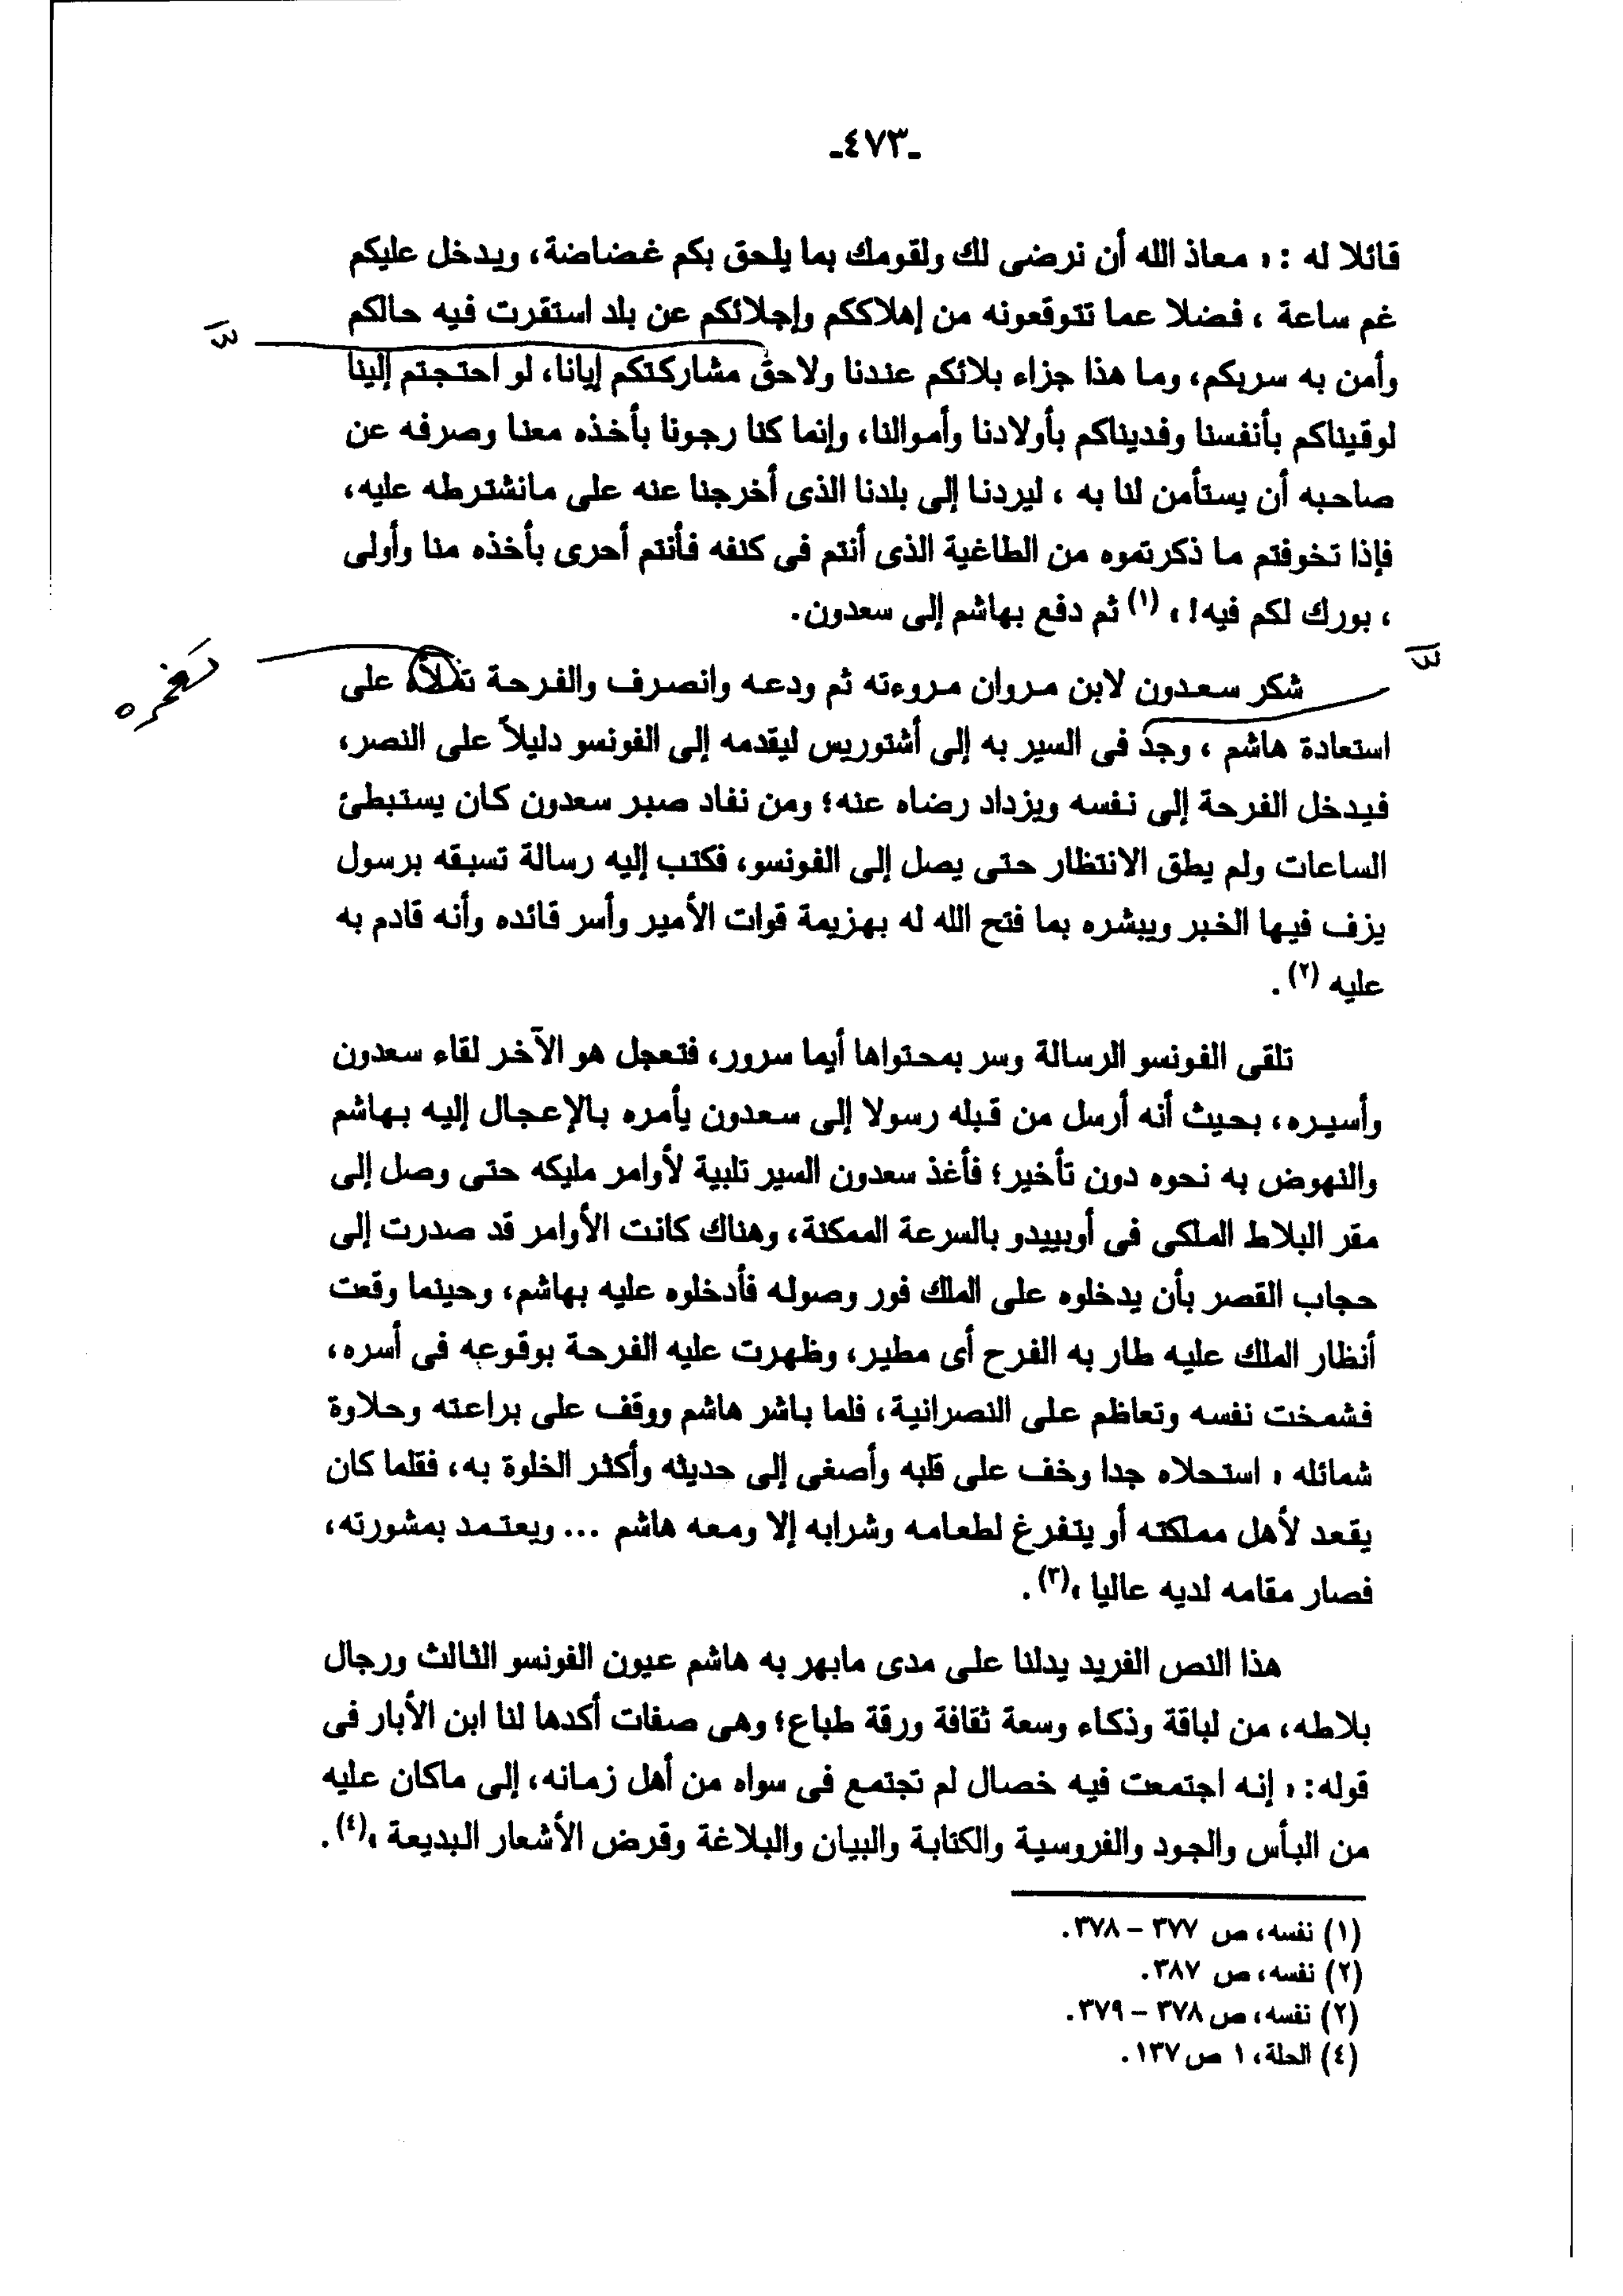 -٤٧٣-
قائلا له : « معاذ الله أن نرضى لك ولقومك بما يلحق بكم غضاضة، ويدخل عليكم
غم ساعة ، فضلا عما تتوقعونه من إهلاككم وإجلائكم عن بلد استقرت فيه حالكم
وأمن به سربكم، وما هذا جزاء بلائكم عندنا ولاحق مشاركتكم إيانا، لو احتجتم إلينا
لوقيناكم بأنفسنا وفديناكم بأولادنا وأموالنا، وإنما كنا رجونا بأخذه معنا وصرفه عن
صاحبه أن يستأمن لنا به ، ليردنا إلى بلدنا الذى أخرجنا عنه على مانشترطه عليه،
فإذا تخوفتم ما ذكرتموه من الطاغية الذى أنتم فى كنفه فأنتم أحرى بأخذه منا وأولى
، بورك لكم فيه! » (١) ثم دفع بهاشم إلى سعدون.
شكر سعدون لابن مروان مروءته ثم ودعه وانصرف والفرحة تملأه على
استعادة هاشم ، وجدّ فى السير به إلى أشتوريس ليقدمه إلى الفونسو دليلاً على النصر،
فيدخل الفرحة إلى نفسه ويزداد رضاه عنه؛ ومن نفاد صبر سعدون كان يستبطئ
الساعات ولم يطق الانتظار حتى يصل إلى الفونسو، فكتب إليه رسالة تسبقه برسول
يزف فيها الخبر ويبشره بما فتح الله له بهزيمة قوات الأمير وأسر قائده وأنه قادم به
عليه (٢) .
تلقى الفونسو الرسالة وسر بمحتواها أيما سرور، فتعجل هو الآخر لقاء سعدون
وأسيره، بحيث أنه أرسل من قبله رسولا إلى سعدون يأمره بالإعجال إليه بهاشم
والنهوض به نحوه دون تأخير؛ فأغذ سعدون السير تلبية لأوامر مليكه حتى وصل إلى
مقر البلاط الملكى فى أوبييدو بالسرعة الممكنة، وهناك كانت الأوامر قد صدرت إلى
حجاب القصر بأن يدخلوه على الملك فور وصوله فأدخلوه عليه بهاشم، وحينما وقعت
أنظار الملك عليه طار به الفرح أى مطير، وظهرت عليه الفرحة بوقوعه فى أسره،
فشمخت نفسه وتعاظم على النصرانية، فلما باشر هاشم ووقف على براعته وحلاوة
شمائله « استحلاه جدا وخف على قلبه وأصغى إلى حديثه وأكثر الخلوة به، فقلما كان
يقعد لأهل مملكته أو يتفرغ لطعامه وشرابه إلا ومعه هاشم ... ويعتمد بمشورته،
فصار مقامه لديه عاليا »(٣) .
هذا النص الفريد يدلنا على مدى مابهر به هاشم عيون الفونسو الثالث ورجال
بلاطه، من لباقة وذكاء وسعة ثقافة ورقة طباع؛ وهى صفات أكدها لنا ابن الأبار فى
قوله: « إنه اجتمعت فيه خصال لم تجتمع فى سواه من أهل زمانه، إلى ماكان عليه
من البأس والجود والفروسية والكتابة والبيان والبلاغة وقرض الأشعار البديعة »(٤) .
(١) نفسه، ص ٣٧٧ – ٣٧٨.
(٢) نفسه، ص ٣٨٧.
(٢) نفسه، ص ٣٧٨ – ٣٧٩.
(٤) الحلة، ١ ص ١٣٧.